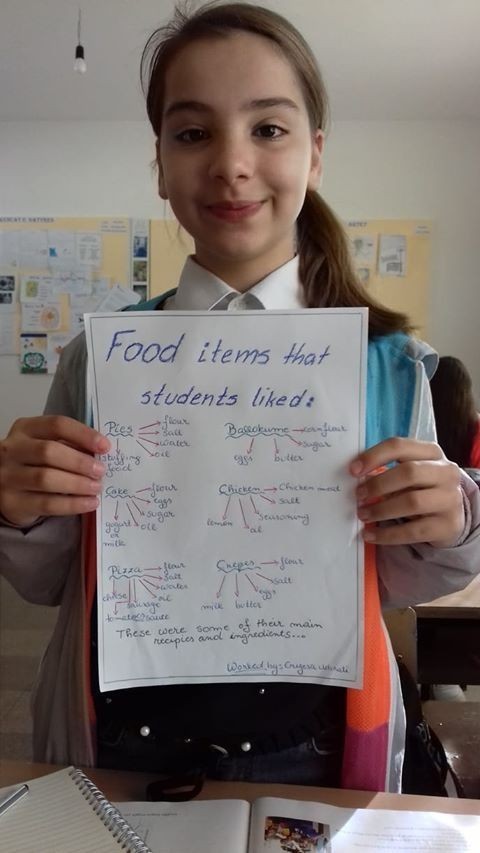 Food items that
students liked:
Pies
flour
salt
water
oil
stuffing
food
Ballokume
cornflour
sugar
butter
eggs
Cake
flour
eggs
sugar
oil
yogurt
or
milk
Chicken
Chicken meat
salt
seasoning
oil
lemon
Pizza
flour
salt
water
oil
sausage
cheese
tomato sauce
Crepes
flour
salt
eggs
butter
milk
These were some of their main
recipies and ingredients...
Worked by: